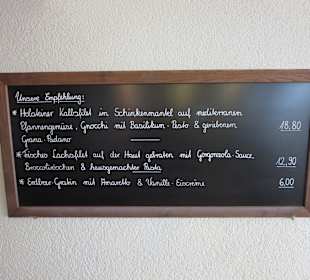 Unsere Empfehlung:
* Holsteiner Kalbsfilet im Schinkenmantel auf mediterranem
Pfannengemüse, Gnocchi mit Basilikum-Pesto & geriebenem
Grana-Padano 18,80
* Frisches Lachsfilet auf der Haut gebraten mit Gorgonzola-Sauce,
Broccoliröschen & hausgemachter Pasta 12,90
* Erdbeer-Gratin mit Amaretto & Vanille-Eiscrème 6,00